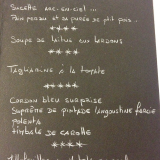 SUCETTE ARC-EN-CIEL ...
PAIN PERDU ET SA PURÉE DE PTIT POIS.
****
SOUPE DE LAITUE AUX LARDONS
****
TAGLIARINE À LA TOMATE
****
CORDON BLEU SURPRISE
SUPRÊME DE PINTADE LANGOUSTINE FARCIE
POLENTA
TIMBALE DE CAROTTE
****